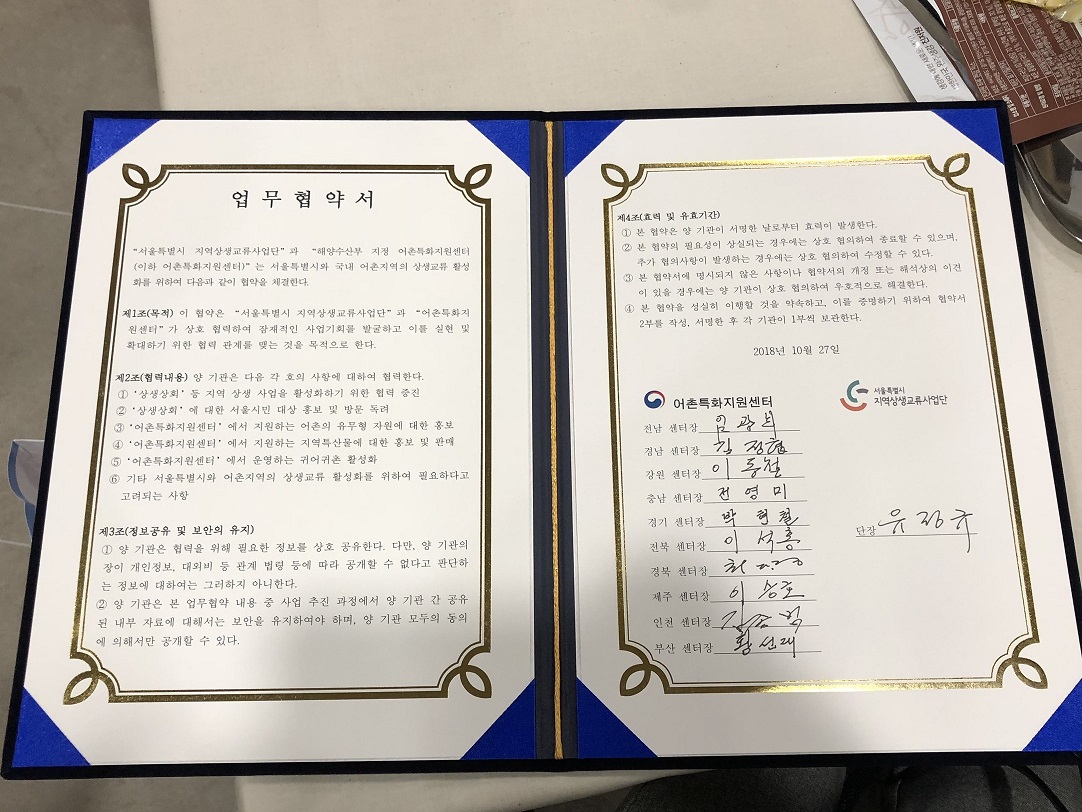 업무협약서
“서울특별시 지역상생교류사업단” 과 “해양수산부 지정 어촌특화지원센터
(이하 어촌특화지원센터)” 는 서울특별시와 국내 어촌지역의 상생교류 활성
화를 위하여 다음과 같이 협약을 체결한다.
제1조(목적) 이 협약은 “서울특별시 지역상생교류사업단” 과 “어촌특화지
원센터” 가 상호 협력하여 잠재적인 사업기회를 발굴하고 이를 실현 및
확대하기 위한 협력 관계를 맺는 것을 목적으로 한다.
제2조(협력내용) 양 기관은 다음 각 호의 사항에 대하여 협력한다.
① ‘상생상회’ 등 지역 상생 사업을 활성화하기 위한 협력 증진
② ‘상생상회’ 에 대한 서울시민 대상 홍보 및 방문 독려
③ ‘어촌특화지원센터’ 에서 지원하는 어촌의 유무형 자원에 대한 홍보
④ ‘어촌특화지원센터’ 에서 지원하는 지역특산물에 대한 홍보 및 판매
⑤ ‘어촌특화지원센터’ 에서 운영하는 귀어귀촌 활성화
⑥ 기타 서울특별시와 어촌지역의 상생교류 활성화를 위하여 필요하다고
고려되는 사항
제3조(정보공유 및 보안의 유지)
① 양 기관은 협력을 위해 필요한 정보를 상호 공유한다. 다만, 양 기관의
장이 개인정보, 대외비 등 관계 법령 등에 따라 공개할 수 없다고 판단하
는 정보에 대하여는 그러하지 아니한다.
② 양 기관은 본 업무협약 내용 중 사업 추진 과정에서 양 기관 간 공유
된 내부 자료에 대해서는 보안을 유지하여야 하며, 양 기관 모두의 동의
에 의해서만 공개할 수 있다.
제4조(효력 및 유효기간)
① 본 협약은 양 기관이 서명한 날로부터 효력이 발생한다.
② 본 협약의 필요성이 상실되는 경우에는 상호 협의하여 종료할 수 있으며,
추가 협의사항이 발생하는 경우에는 상호 협의하여 수정할 수 있다.
③ 본 협약서에 명시되지 않은 사항이나 협약서의 개정 또는 해석상의 이견
이 있을 경우에는 양 기관이 상호 협의하여 우호적으로 해결한다.
④ 본 협약을 성실히 이행할 것을 약속하고, 이를 증명하기 위하여 협약서
2부를 작성, 서명한 후 각 기관이 1부씩 보관한다.
2018년 10월 27일
어촌특화지원센터
전남 센터장 임광
경남 센터장 김정협
강원 센터장 이동철
충남 센터장 전영미
경기 센터장 박현철
전북 센터장 이석홍
경북 센터장
제주 센터장 이승호
인천 센터장
부산 센터장 황선재
서울특별시
지역상생교류사업단
단장 유정규